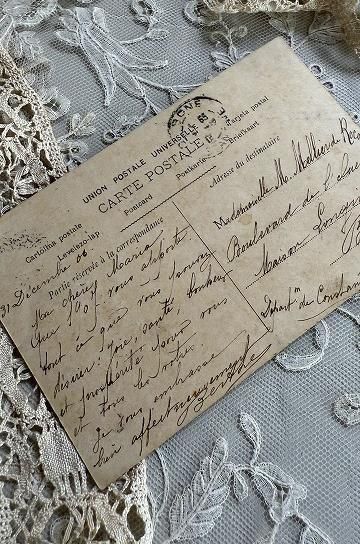 UNION POSTALE UNIVERSELLE
CARTE POSTALE
Postcard
Postkarte
Briefkaart
Tarjeta postal
Cartolina postale
Levelezőlap
Partie réservée à la correspondance
Adresse du destinataire
31 Décembre 06
Ma chère Maria
Que 1907 vous apporte
tout ce que vous pouvez
désirer: joie, santé, bonheur
et prospérité pour vous
et tous les votres.
Je vous embrasse
bien affectueusement
Berthe
Mademoiselle M.
Boulevard de
Maison